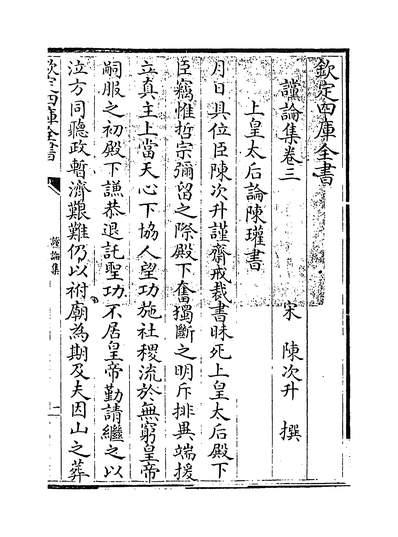 欽定四庫全書
讜論集卷三
宋 陳次升 撰
上皇太后論陳瓘書
月日具位臣陳次升謹齋戒裁書昧死上皇太后殿下
臣竊惟哲宗彌留之際殿下奮獨斷之明斥排異端援
立真主上當天心下協人望功施社稷流於無窮皇帝
嗣服之初殿下謙恭退託聖功不居皇帝勤請繼之以
泣方同聽政暫濟艱難仍以祔廟為期及夫因山之葬
欽定四庫全書
讜論集
一